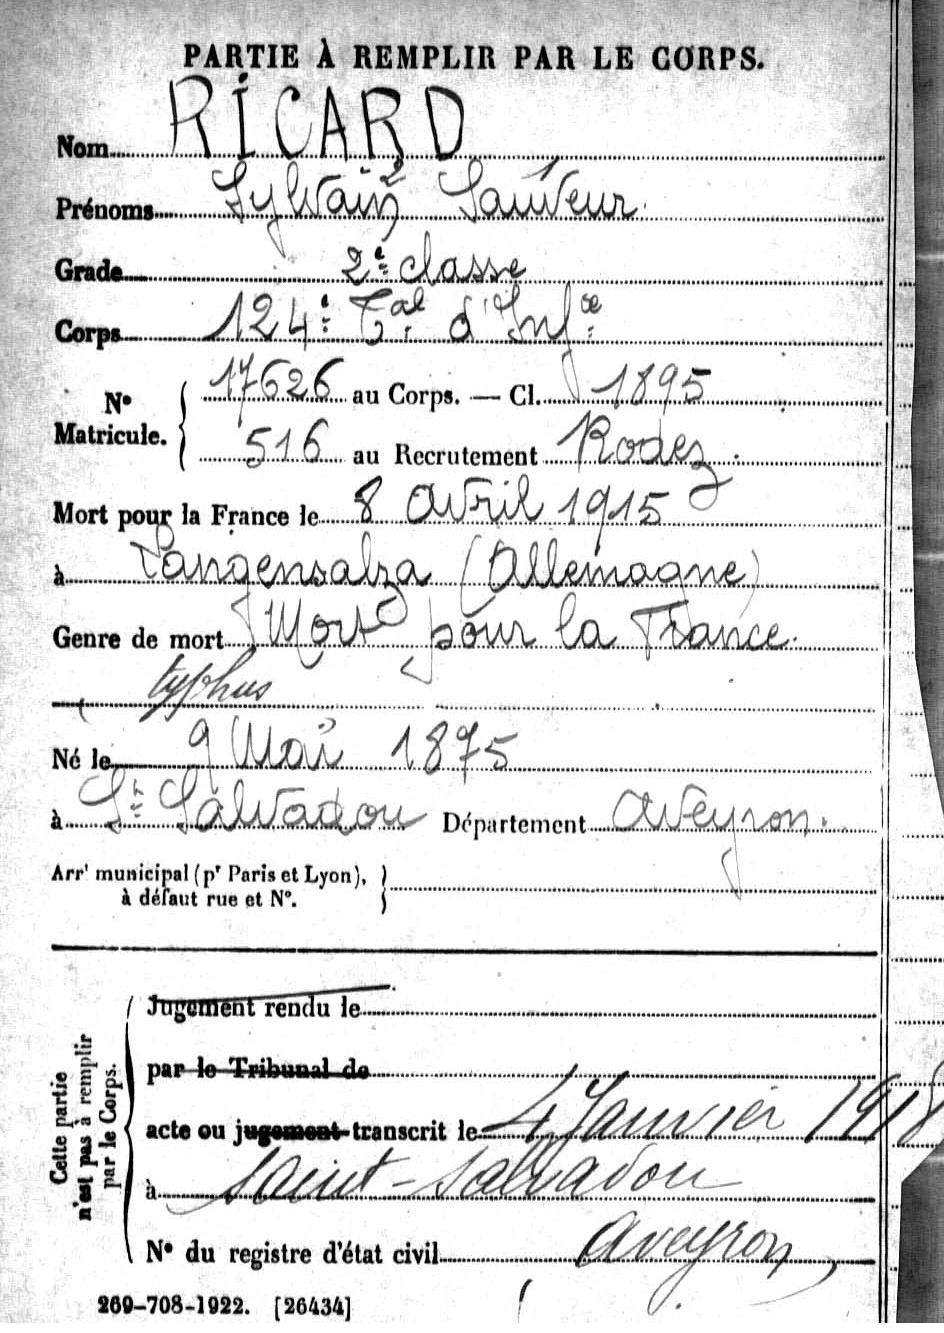 PARTIE À REMPLIR PAR LE CORPS.
Nom RICARD
Prénoms Sylvain 2 Sauveur 1
Grade 2e classe
Corps 124e Tal d'Infie
No Matricule. 17626 au Corps. — Cl. 1895
516 au Recrutement Rodez.
Mort pour la France le 8 Avril 1915
à Langensalza (Allemagne)
Genre de mort Mort pour la France.
typhus
Né le 9 Mai 1875
à St Salvadou Département Aveyron.
Arrt municipal (pr Paris et Lyon),
à défaut rue et No.
Cette partie
n'est pas à remplir
par le Corps.
Jugement rendu le
par le Tribunal de
acte ou jugement transcrit le 4 Janvier 1918
à Saint-Salvadou
No du registre d'état civil Aveyron
269-708-1922. [26434]